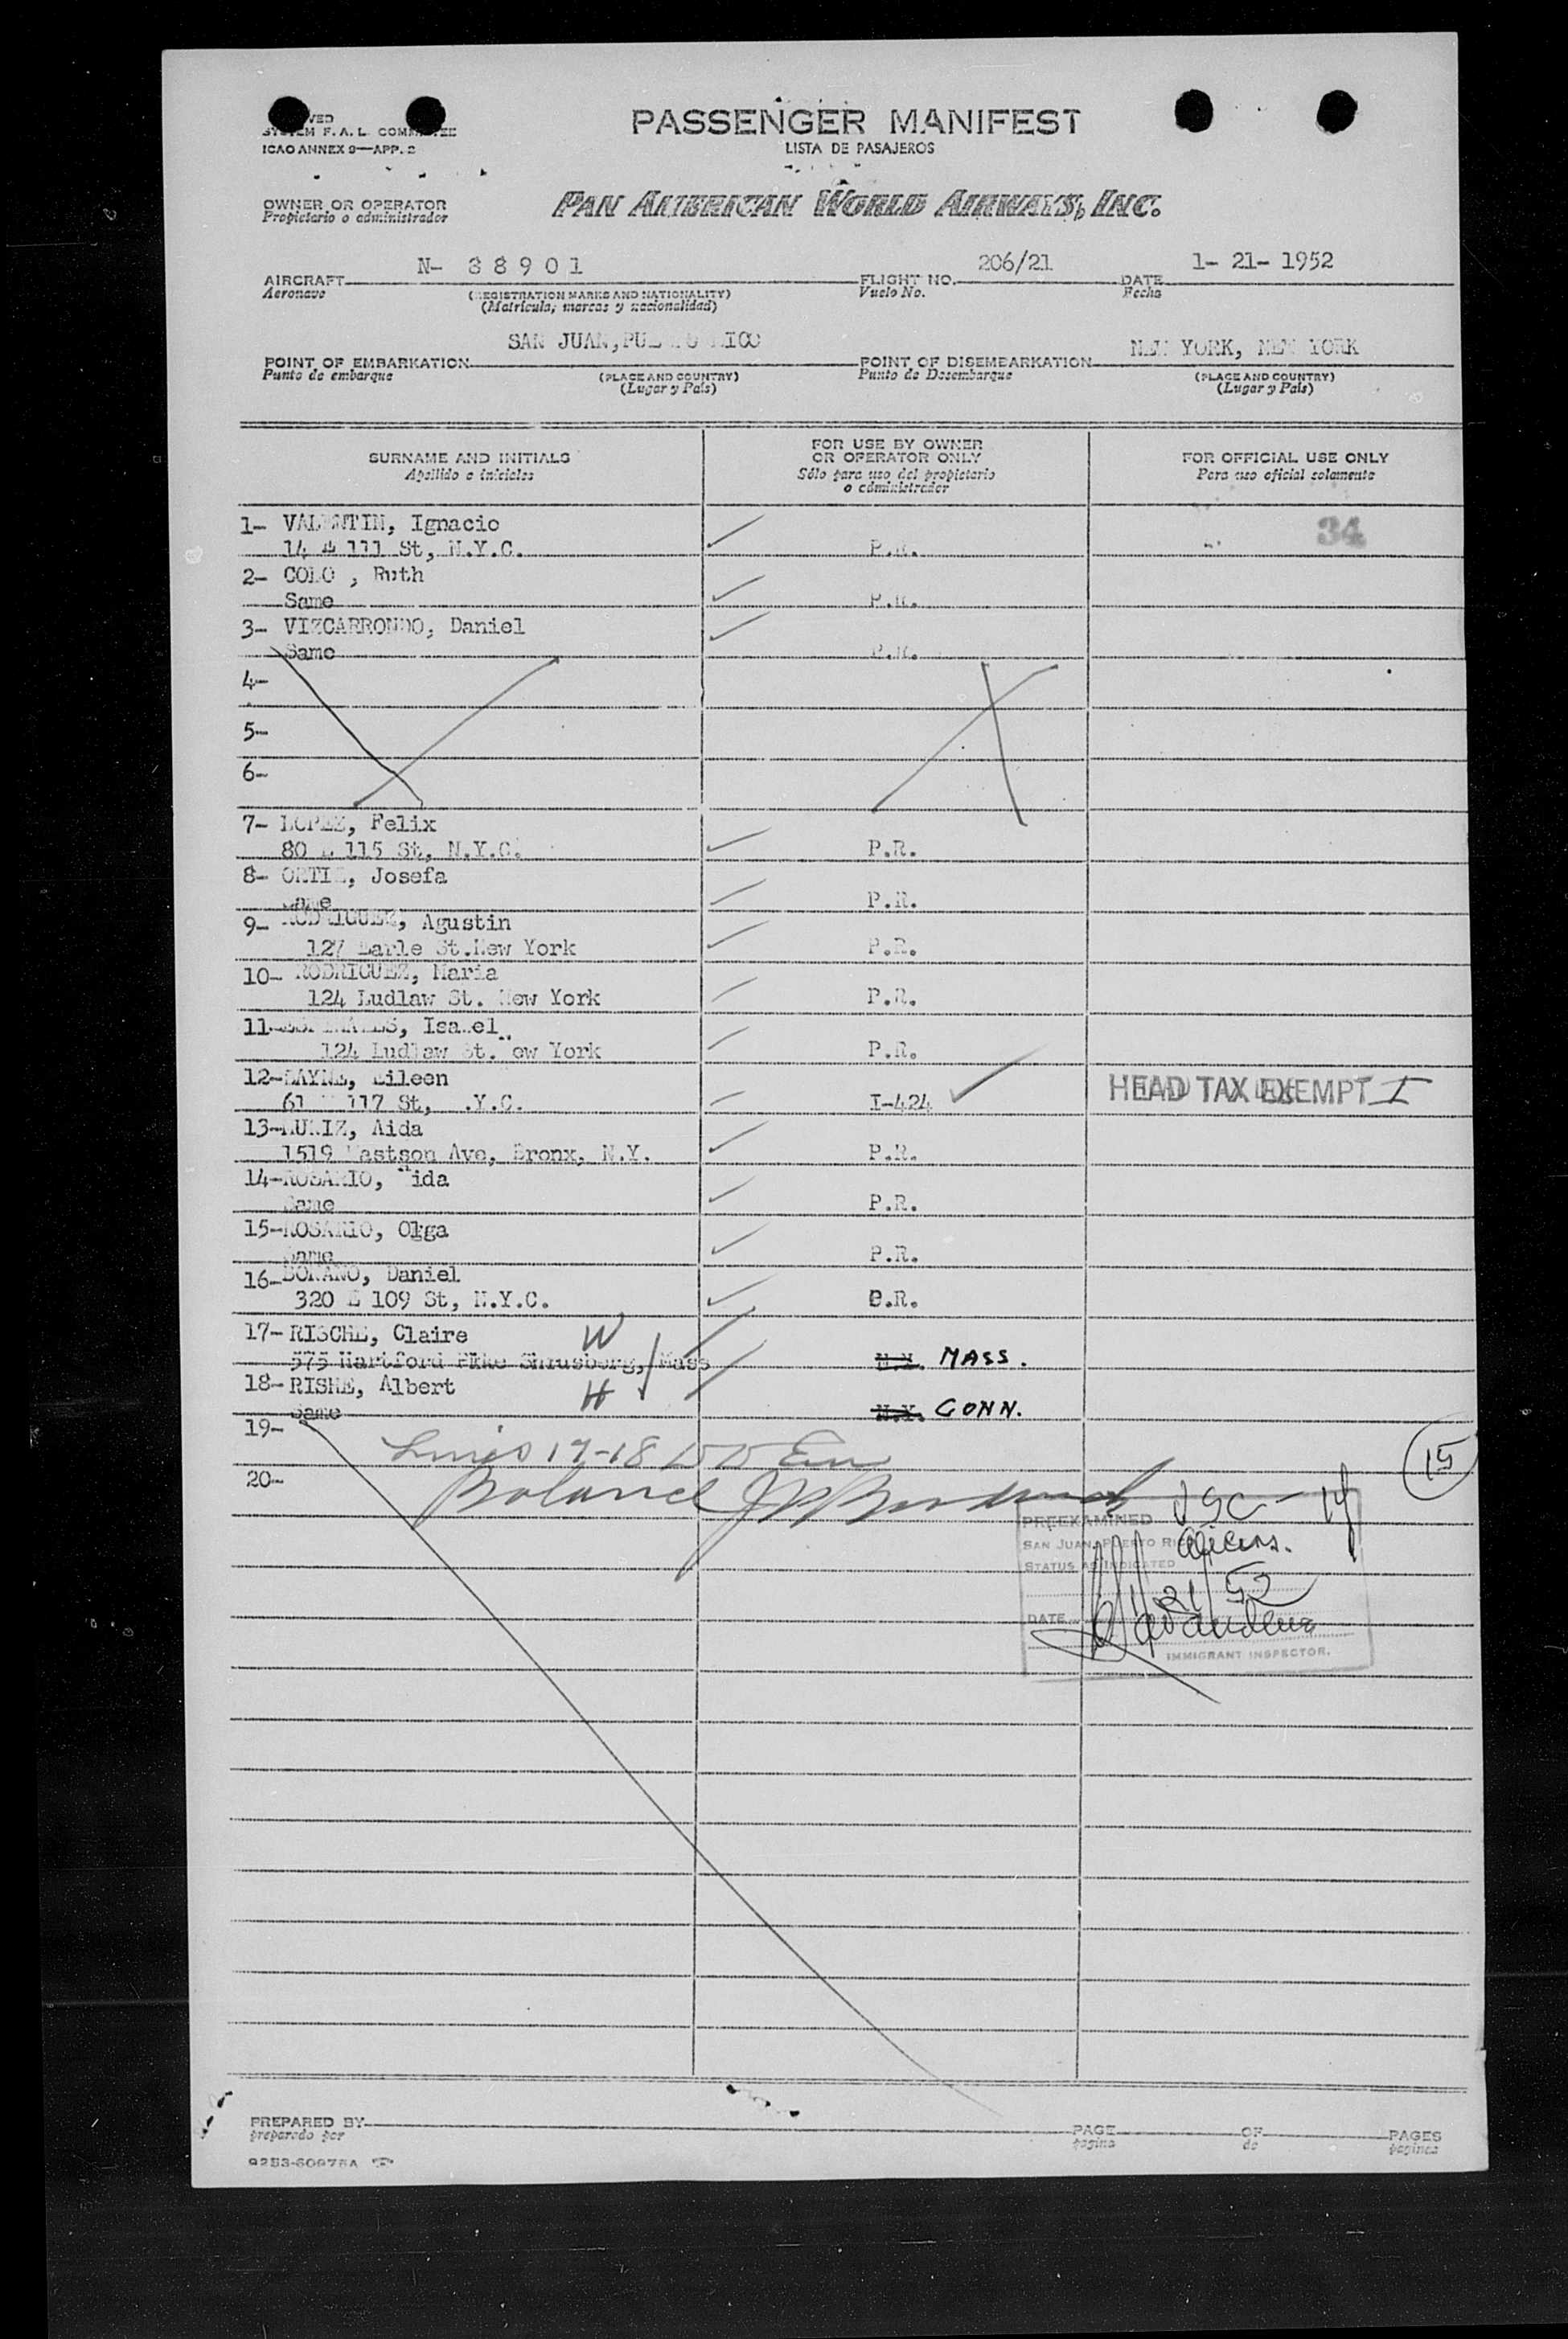 SYSTEM F. A. L. COMMITTEE
ICAO ANNEX 9—APP. 2
PASSENGER MANIFEST
LISTA DE PASAJEROS
OWNER OR OPERATOR
Propietario o administrador
PAN AMERICAN WORLD AIRWAYS, INC.
AIRCRAFT N- 88901 FLIGHT NO. 206/21 DATE 1- 21- 1952
Aeronave (REGISTRATION MARKS AND NATIONALITY) Vuelo No. Fecha
(Matrícula, marcas y nacionalidad)
POINT OF EMBARKATION SAN JUAN, PUERTO RICO POINT OF DISEMBARKATION NEW YORK, NEW YORK
Punto de embarque (PLACE AND COUNTRY) Punto de Desembarque (PLACE AND COUNTRY)
(Lugar y País) (Lugar y País)
SURNAME AND INITIALS
Apellido e iniciales
FOR USE BY OWNER
OR OPERATOR ONLY
Sólo para uso del propietario
o administrador
FOR OFFICIAL USE ONLY
Para uso oficial solamente
1- VALENTIN, Ignacio 34
14 E 111 St, N.Y.C. P.R.
2- COLO , Ruth
Same P.R.
3- VIZCARRONDO, Daniel
Same P.R.
4-
5-
6-
7- LOPEZ, Felix
80 E 115 St, N.Y.C. P.R.
8- ORTIZ, Josefa
Same P.R.
9- RODRIGUEZ, Agustin
127 Earle St. New York P.R.
10- RODRIGUEZ, Maria
124 Ludlaw St. New York P.R.
11- Isabel
124 Ludlaw St. New York P.R.
12- Eileen
61 117 St, .Y.C. I-424 HEAD TAX EXEMPT I
13- MUNIZ, Aida
1519 Ave, Bronx, N.Y. P.R.
14- ROSARIO, Aida
Same P.R.
15- ROSARIO, Olga
Same P.R.
16- Daniel
320 E 109 St, N.Y.C. P.R.
17- RISCHE, Claire W
575 Hartford Pike Shrusberg, Mass N.Y. MASS.
18- RISHE, Albert H
Same N.Y. CONN.
19-
17-18
20-
15
PREEXAMINED
SAN JUAN, PUERTO RICO
STATUS AS INDICATED
1/21/52
DATE
IMMIGRANT INSPECTOR.
PREPARED BY PAGE OF PAGES
preparado por página de páginas